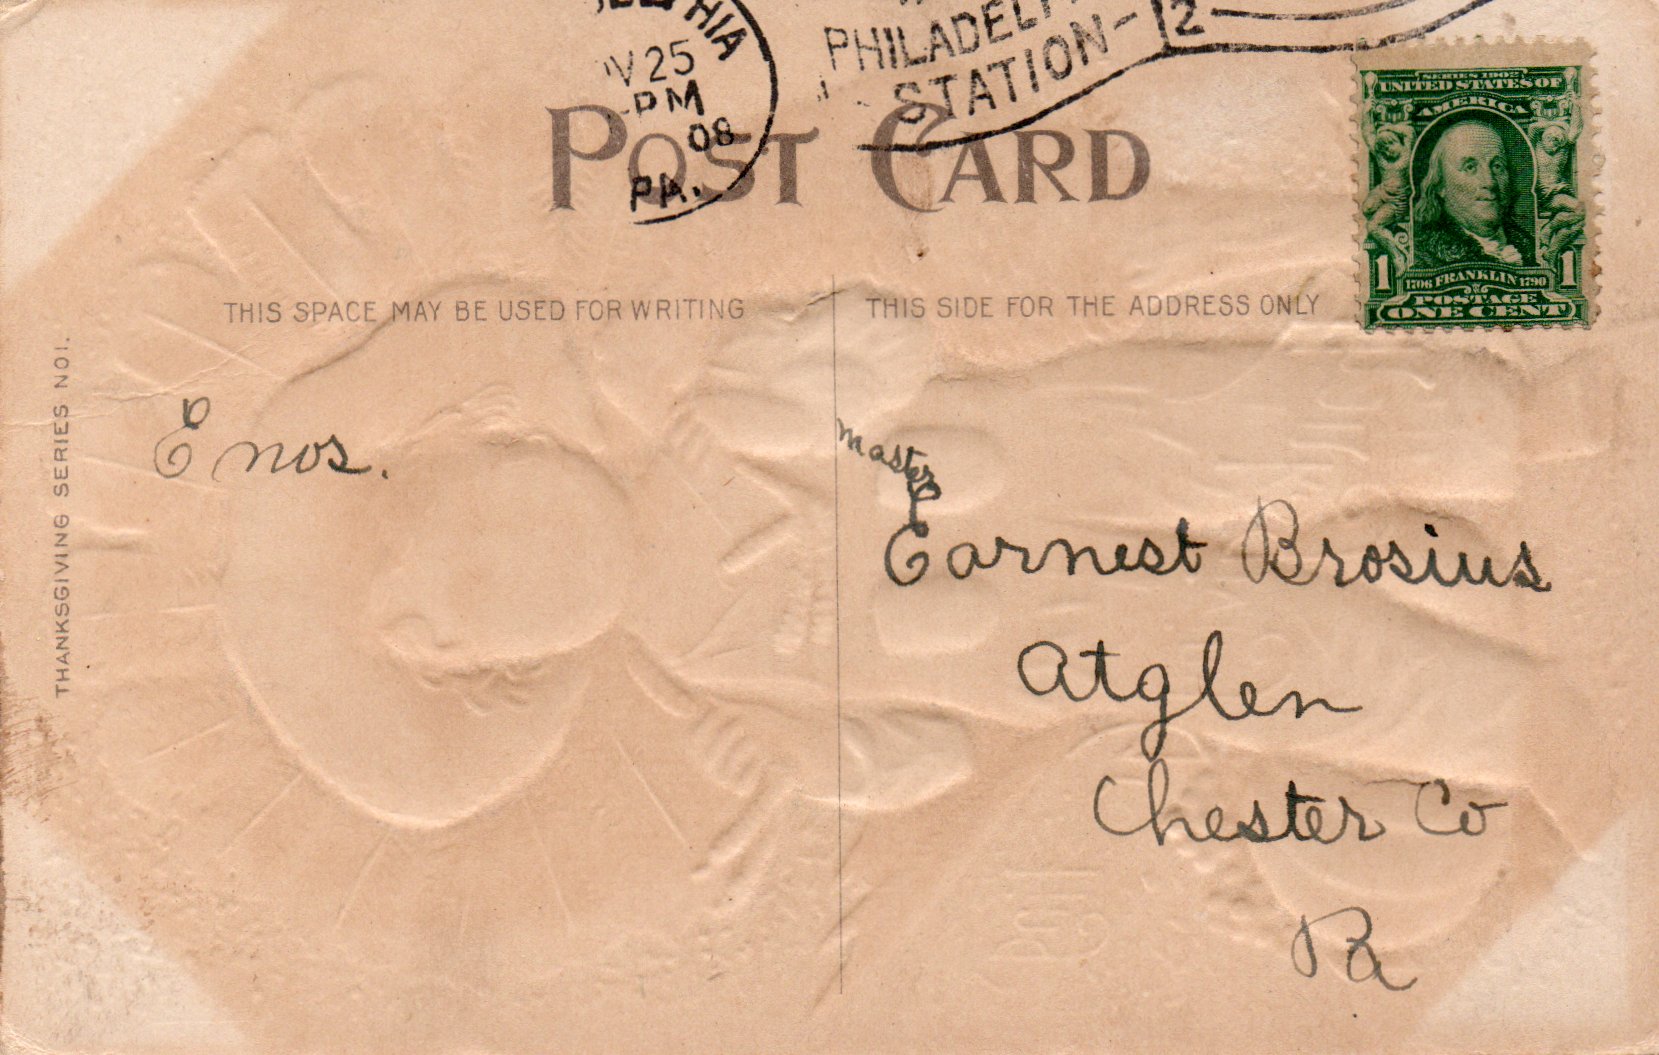 PHIA
25
PM
08
PA.
PHILADELP
STATION-
12
SERIES 1902
UNITED STATES OF
AMERICA
1
1706 FRANKLIN 1790
1
POSTAGE
ONE CENT
POST CARD
THIS SPACE MAY BE USED FOR WRITING
THIS SIDE FOR THE ADDRESS ONLY
THANKSGIVING SERIES NO1.
Enos.
Master
Earnest Brosius
Atglen
Chester Co
Pa